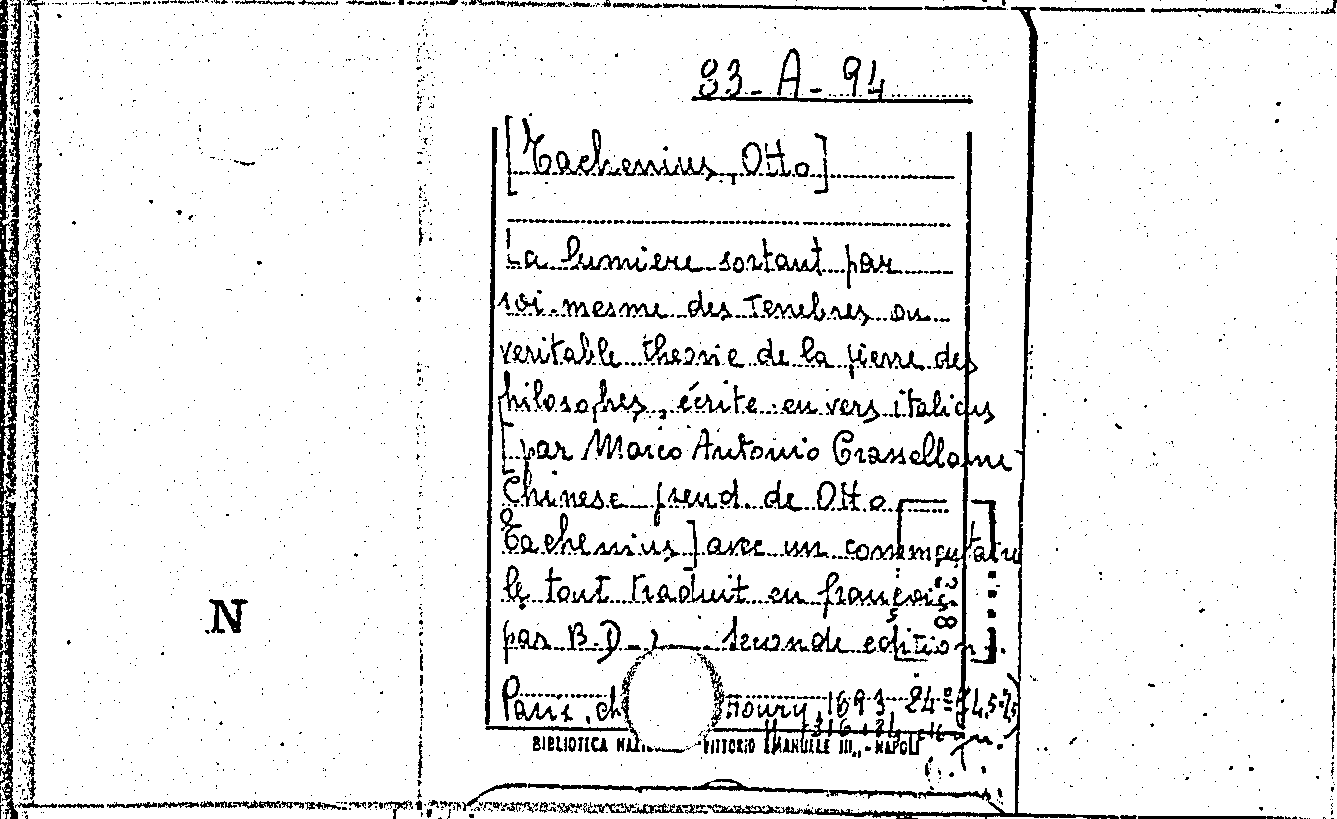 83-A-94
[Tachenius, Otto]
La lumiere sortant par
soi-mesme des tenebres ou
veritable theorie de la pierre des
philosophes, écrite en vers italiens
[par Marco Antonio Crassellame
Chinese pseud. de Otto
Tachenius] avec un commentaire
le tout traduit en françois
par B.D. Seconde edition.
Paris, ch 1693 24°
BIBLIOTECA VITTORIO EMANUELE III,, - NAPOLI
N